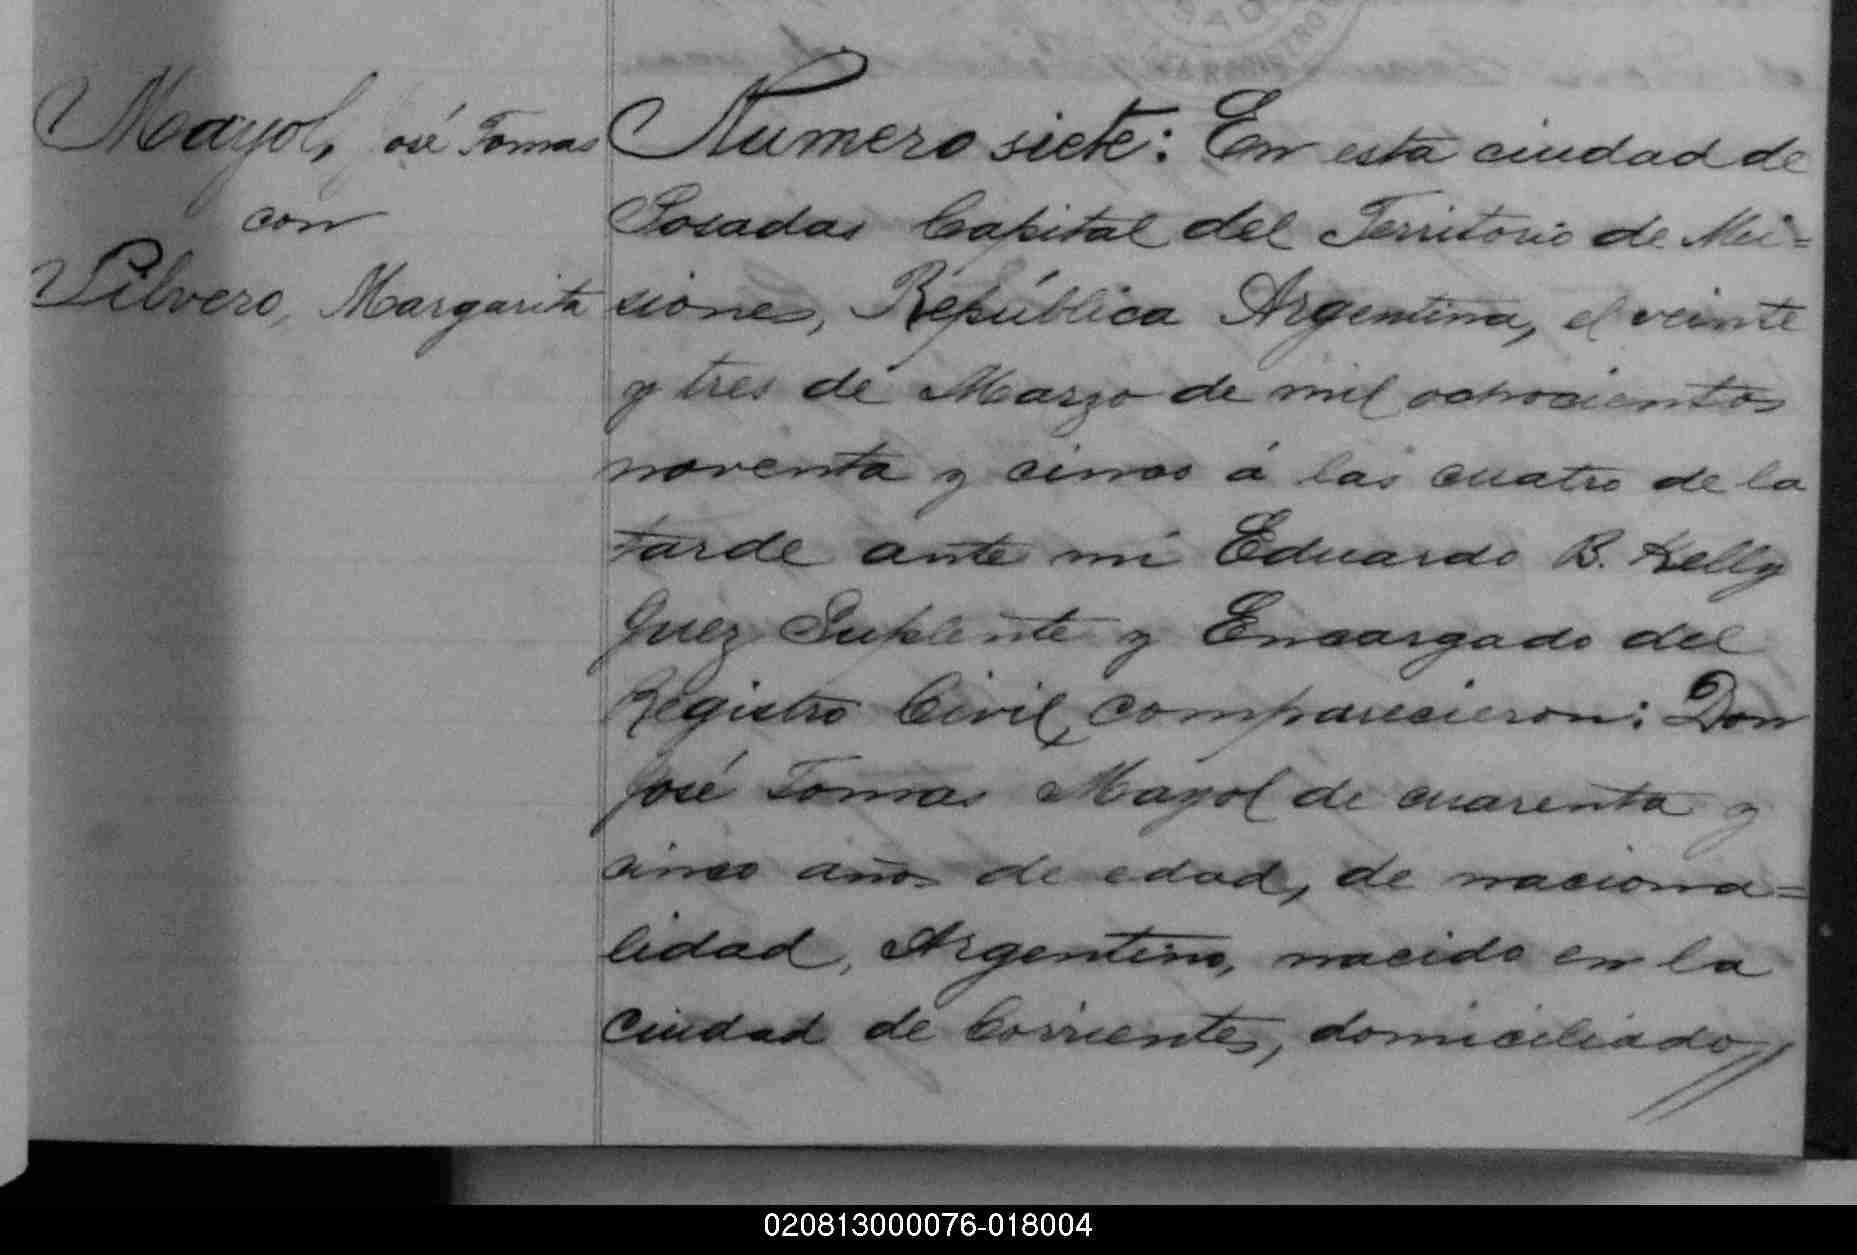 Mayol, José Tomas
con
Silvero, Margarita
Numero siete: En esta ciudad de
Posadas Capital del Territorio de Mi=
siones, República Argentina, el veinte
y tres de Marzo de mil ochocientos
noventa y cinco á las cuatro de la
tarde ante mi Eduardo B. Kelly
Juez Suplente y Encargado del
Registro Civil, comparecieron: Don
José Tomas Mayol de cuarenta y
cinco años de edad, de naciona=
lidad, Argentino, nacido en la
ciudad de Corrientes, domiciliado//
020813000076-018004